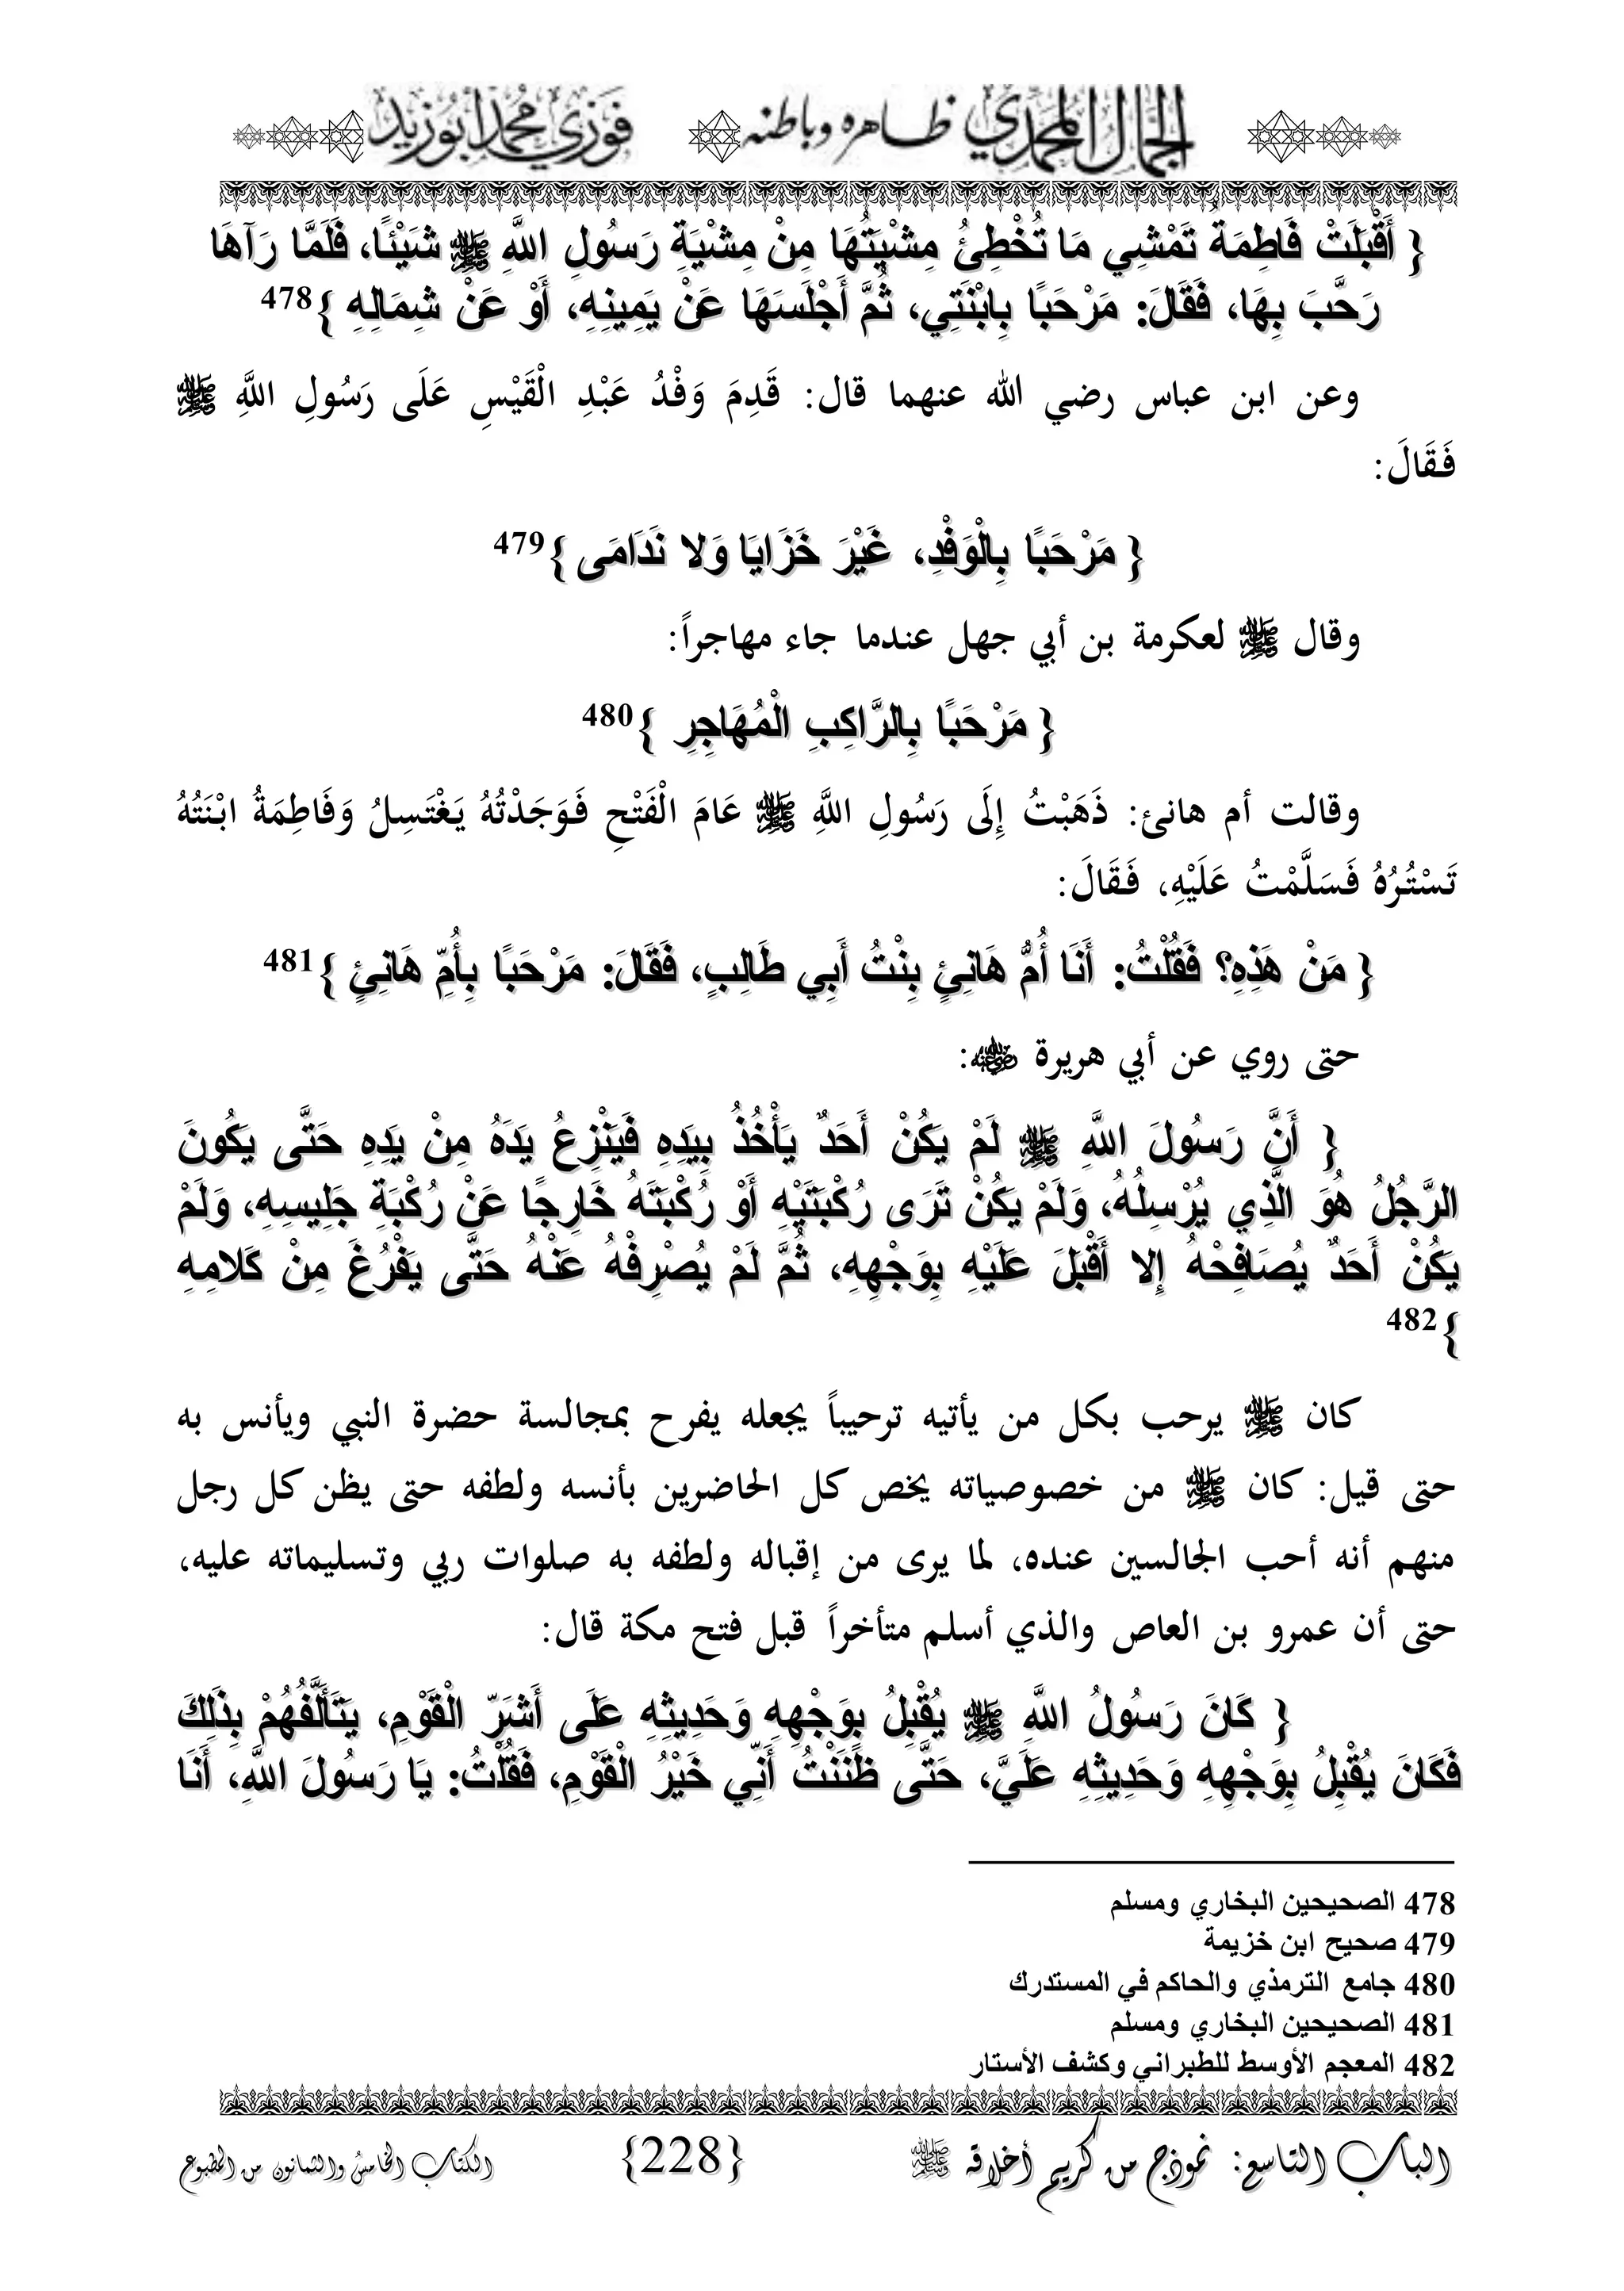 الجمال المحمدي ظاهره وباطنه فوزي محمد أبوزيد
{ أَقْبَلَتْ فَاطِمَةُ تَمْشِي مَا تُخْطِئُ مِشْيَتُهَا مِنْ مِشْيَةِ رَسُولِ اللَّهِ ﷺ شَيْئًا، فَلَمَّا رَآهَا
رَحَّبَ بِهَا، فَقَالَ: مَرْحَبًا بِابْنَتِي، ثُمَّ أَجْلَسَهَا عَنْ يَمِينِهِ، أَوْ عَنْ شِمَالِهِ }478
وعن ابن عباس رضي الله عنهما قال: قَدِمَ وَفْدُ عَبْدِ الْقَيْسِ عَلَى رَسُولِ اللَّهِ ﷺ
فَقَالَ:
{ مَرْحَبًا بِالْوَفْدِ، غَيْرَ خَزَايَا وَلا نَدَامَى }479
وقال ﷺ لعكرمة بن أبي جهل عندما جاء مهاجراً:
{ مَرْحَبًا بِالرَّاكِبِ الْمُهَاجِرِ }480
وقالت أم هانئ: ذَهَبْتُ إِلَى رَسُولِ اللَّهِ ﷺ عَامَ الْفَتْحِ فَوَجَدْتُهُ يَغْتَسِلُ وَفَاطِمَةُ ابْنَتُهُ
تَسْتُرُهُ فَسَلَّمْتُ عَلَيْهِ، فَقَالَ:
{ مَنْ هَذِهِ؟ فَقُلْتُ: أَنَا أُمُّ هَانِئٍ بِنْتُ أَبِي طَالِبٍ، فَقَالَ: مَرْحَبًا بِأُمِّ هَانِئٍ }481
حتى روي عن أبي هريرة ﵁:
{ أَنَّ رَسُولَ اللَّهِ ﷺ لَمْ يَكُنْ أَحَدٌ يَأْخُذُ بِيَدِهِ فَيَنْزِعُ يَدَهُ مِنْ يَدِهِ حَتَّى يَكُونَ
الرَّجُلُ هُوَ الَّذِي يُرْسِلُهُ، وَلَمْ يَكُنْ تَرَى رُكْبَتَيْهِ أَوْ رُكْبَتَهُ خَارِجًا عَنْ رُكْبَةِ جَلِيسِهِ، وَلَمْ
يَكُنْ أَحَدٌ يُصَافِحْهُ إِلا أَقْبَلَ عَلَيْهِ بِوَجْهِهِ، ثُمَّ لَمْ يُصْرِفْهُ عَنْهُ حَتَّى يَفْرُغَ مِنْ كَلامِهِ
}482
كان ﷺ يرحب بكل من يأتيه ترحيباً يجعله يفرح بمجالسة حضرة النبي ويأنس به
حتى قيل: كان ﷺ من خصوصياته يخص كل الحاضرين بأنسه ولطفه حتى يظن كل رجل
منهم أنه أحب الجالسين عنده، لما يرى من إقباله ولطفه به صلوات ربي وتسليماته عليه،
حتى أن عمرو بن العاص والذي أسلم متأخراً قبل فتح مكة قال:
{ كَانَ رَسُولُ اللَّهِ ﷺ يُقْبِلُ بِوَجْهِهِ وَحَدِيثِهِ عَلَى أَشَرِّ الْقَوْمِ، يَتَأَلَّفُهُمْ بِذَلِكَ
فَكَانَ يُقْبِلُ بِوَجْهِهِ وَحَدِيثِهِ عَلَيَّ، حَتَّى ظَنَنْتُ أَنِّي خَيْرُ الْقَوْمِ، فَقُلْتُ: يَا رَسُولَ اللَّهِ، أَنَا
478 الصحيحين البخاري ومسلم
479 صحيح ابن خزيمة
480 جامع الترمذي والحاكم في المستدرك
481 الصحيحين البخاري ومسلم
482 المعجم الأوسط للطبراني وكشف الأستار
الباب التاسع: نموذج من كريم أخلاقه ﷺ {228} الكتاب الخامس والثمانون من المطبوع